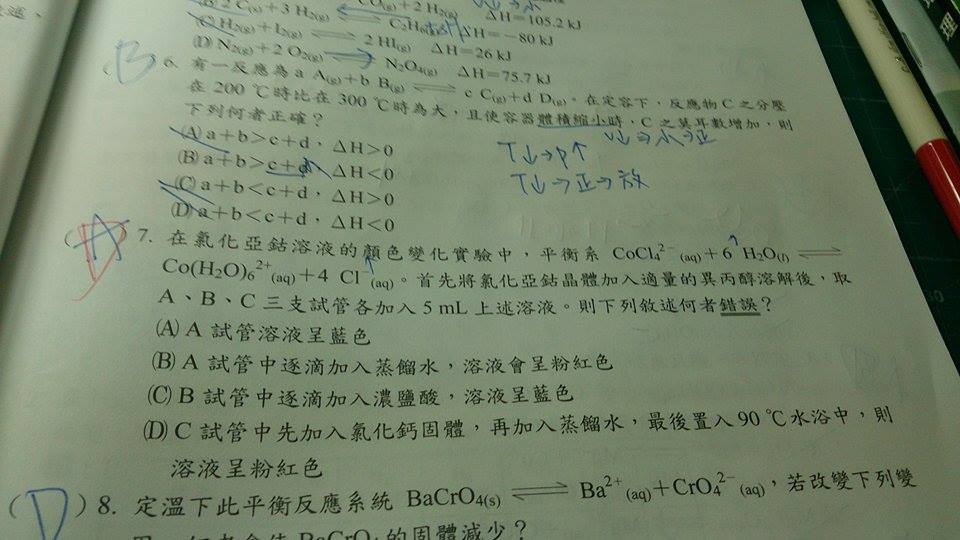 2 C(s)+3 H2(g) C2H6(g) ΔH=-80 kJ
CO(g)+2 H2(g) ΔH=-105.2 kJ
(C) H2(g)+I2(g) ⇌ 2 HI(g) ΔH=26 kJ
(D) N2(g)+2 O2(g) → N2O4(g) ΔH=75.7 kJ
(B) 6. 有一反應為a A(g)+b B(g) ⇌ c C(g)+d D(g)。在定容下,反應物C之分壓
在 200 ℃時比在 300 ℃時為大,且使容器體積縮小時,C之莫耳數增加,則
下列何者正確?
V↓⇒小⇒正
(A) a+b>c+d,ΔH>0
T↓→P↑
(B) a+b>c+d,ΔH<0
T↓→正→放
(C) a+b<c+d,ΔH>0
(D) a+b<c+d,ΔH<0
7. 在氯化亞鈷溶液的顏色變化實驗中,平衡系 CoCl4²⁻(aq)+6 H2O(l) ⇌
Co(H2O)6²⁺(aq)+4 Cl⁻(aq)。首先將氯化亞鈷晶體加入適量的異丙醇溶解後,取
A、B、C 三支試管各加入 5 mL 上述溶液。則下列敘述何者錯誤?
(A) A 試管溶液呈藍色
(B) A 試管中逐滴加入蒸餾水,溶液會呈粉紅色
(C) B 試管中逐滴加入濃鹽酸,溶液呈藍色
(D) C 試管中先加入氯化鈣固體,再加入蒸餾水,最後置入 90 ℃水浴中,則
溶液呈粉紅色
(D) 8. 定溫下此平衡反應系統 BaCrO4(s) ⇌ Ba²⁺(aq)+CrO4²⁻(aq),若改變下列變
的固體減少?
理